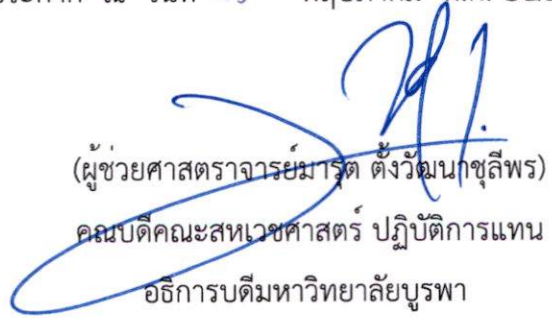 ณ วันที่
(ผู้ช่วยศาสตราจารย์มารุต ตั้งวัฒนาชุลีพร)
คณบดีคณะสหเวชศาสตร์ ปฏิบัติการแทน
อธิการบดีมหาวิทยาลัยบูรพา